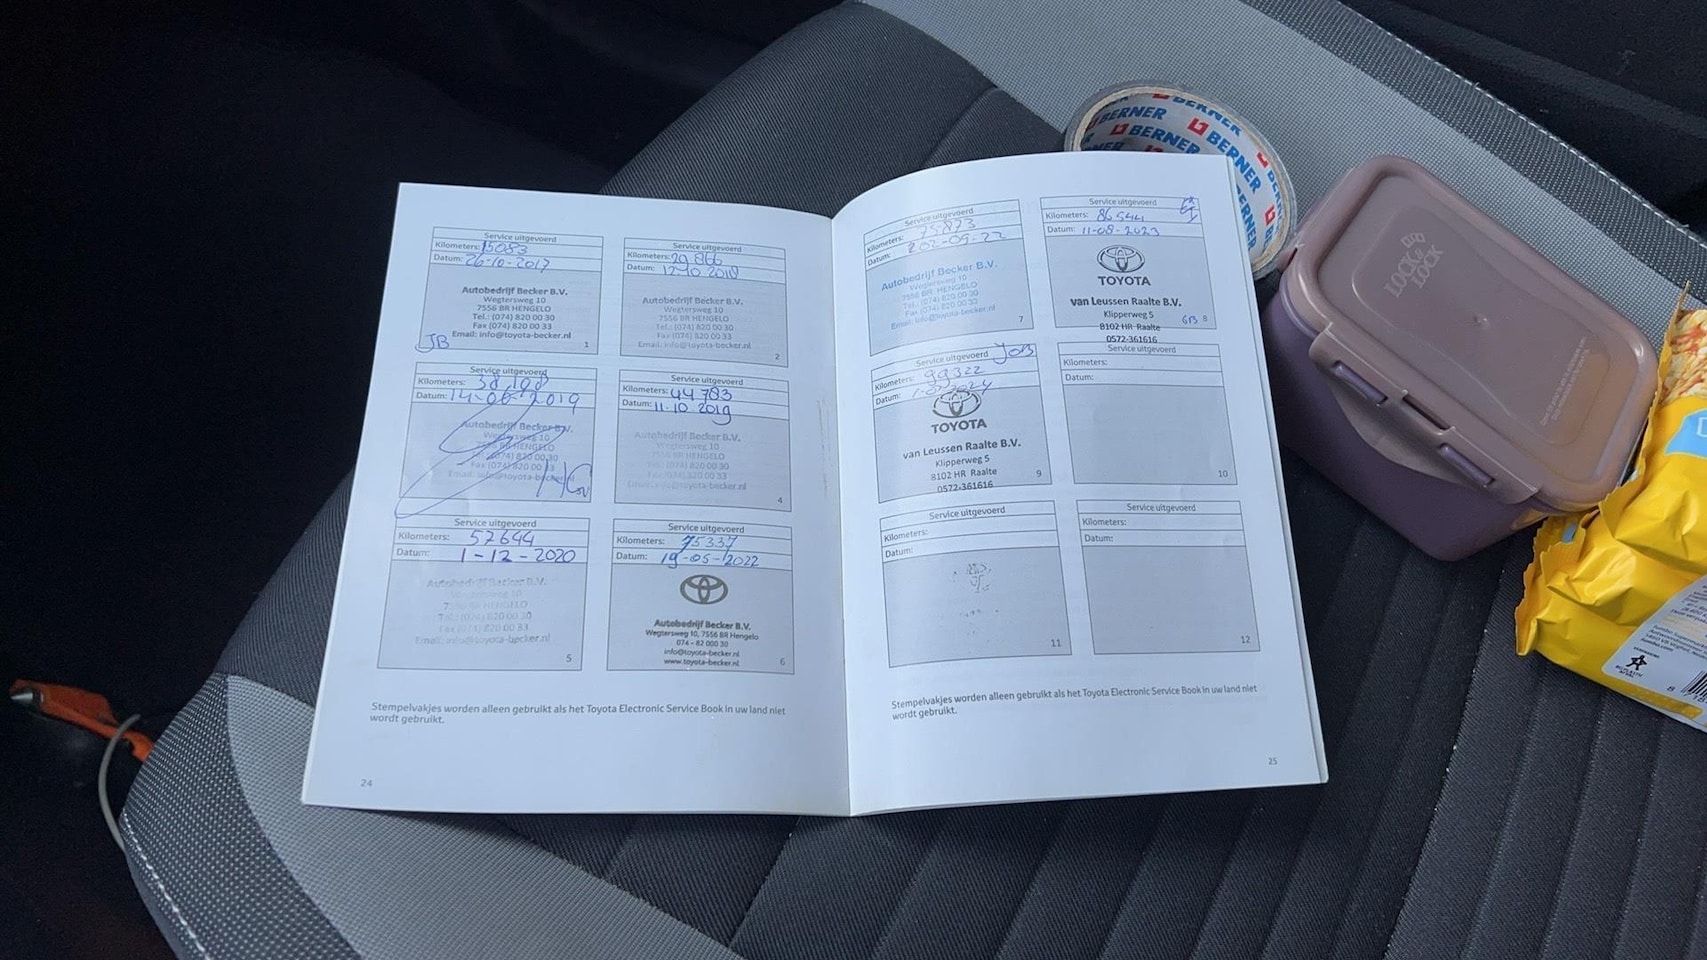 Service uitgevoerd
Kilometers: 15083
Datum: 26-10-2017
Autobedrijf Becker B.V.
Wegtersweg 10
7556 BR HENGELO
Tel.: (074) 820 00 30
Fax (074) 820 00 33
Email: info@toyota-becker.nl
JB
1
Service uitgevoerd
Kilometers: 29 866
Datum: 12-10 2018
Autobedrijf Becker B.V.
Wegtersweg 10
7556 BR HENGELO
Tel.: (074) 820 00 30
Fax (074) 820 00 33
Email: info@toyota-becker.nl
2
Service uitgevoerd
Kilometers: 38,108
Datum: 14-06-2019
Autobedrijf Becker B.V.
Wegtersweg 10
7556 BR HENGELO
Tel.: (074) 820 00 30
Fax (074) 820 00 33
Email: info@toyota-becker.nl
Service uitgevoerd
Kilometers: 44 783
Datum: 11-10 2019
Autobedrijf Becker B.V.
Wegtersweg 10
7556 BR HENGELO
Tel.: (074) 820 00 30
Fax (074) 820 00 33
Email: info@toyota-becker.nl
4
Service uitgevoerd
Kilometers: 57644
Datum: 1-12-2020
Autobedrijf Becker B.V.
Wegtersweg 10
7556 BR HENGELO
Tel.: (074) 820 00 30
Fax (074) 820 00 33
Email: info@toyota-becker.nl
5
Service uitgevoerd
Kilometers: 75337
Datum: 19-05-2022
Autobedrijf Becker B.V.
Wegtersweg 10, 7556 BR Hengelo
074 - 82 000 30
info@toyota-becker.nl
www.toyota-becker.nl
6
Stempelvakjes worden alleen gebruikt als het Toyota Electronic Service Book in uw land niet
wordt gebruikt.
24
Service uitgevoerd
Kilometers: 75873
Datum: 202-09-22
Autobedrijf Becker B.V.
Wegtersweg 10
7556 BR HENGELO
Tel.: (074) 820 00 30
Fax (074) 820 00 33
Email: info@toyota-becker.nl
7
Service uitgevoerd
Kilometers: 86544
Datum: 11-08-2023
TOYOTA
van Leussen Raalte B.V.
Klipperweg 5
8102 HR Raalte
0572-361616
8
Service uitgevoerd
Kilometers: 99322
Datum:
TOYOTA
van Leussen Raalte B.V.
Klipperweg 5
8102 HR Raalte
0572-361616
9
Service uitgevoerd
Kilometers:
Datum:
10
Service uitgevoerd
Kilometers:
Datum:
11
Service uitgevoerd
Kilometers:
Datum:
12
Stempelvakjes worden alleen gebruikt als het Toyota Electronic Service Book in uw land niet
wordt gebruikt.
25
BERNER
BERNER
BERNER
BERNER
BERNER
LOCK & LOCK